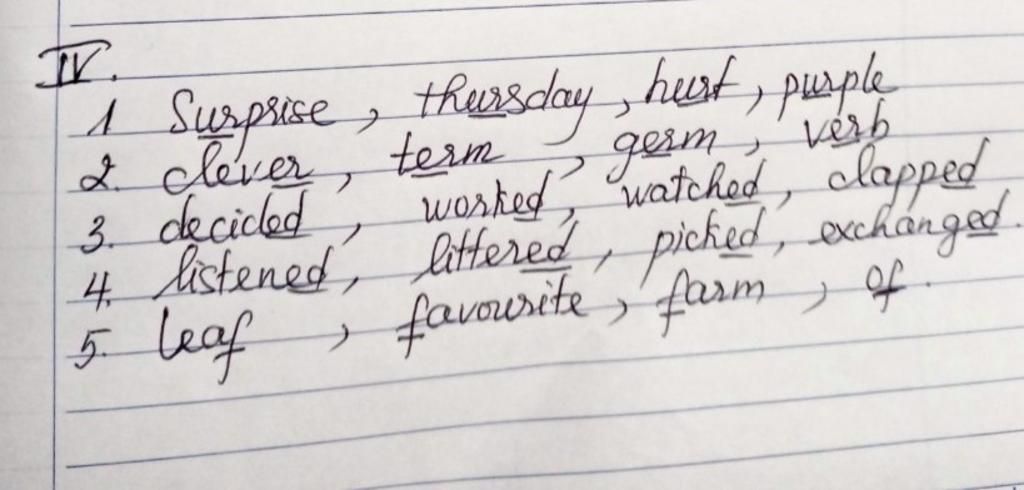 IV.
1 Surprise, thursday, hurt, purple
2. clever, term, germ, verb
3. decided, worked, watched, clapped
4. listened, littered, picked, exchanged.
5. leaf, favourite, farm, of.